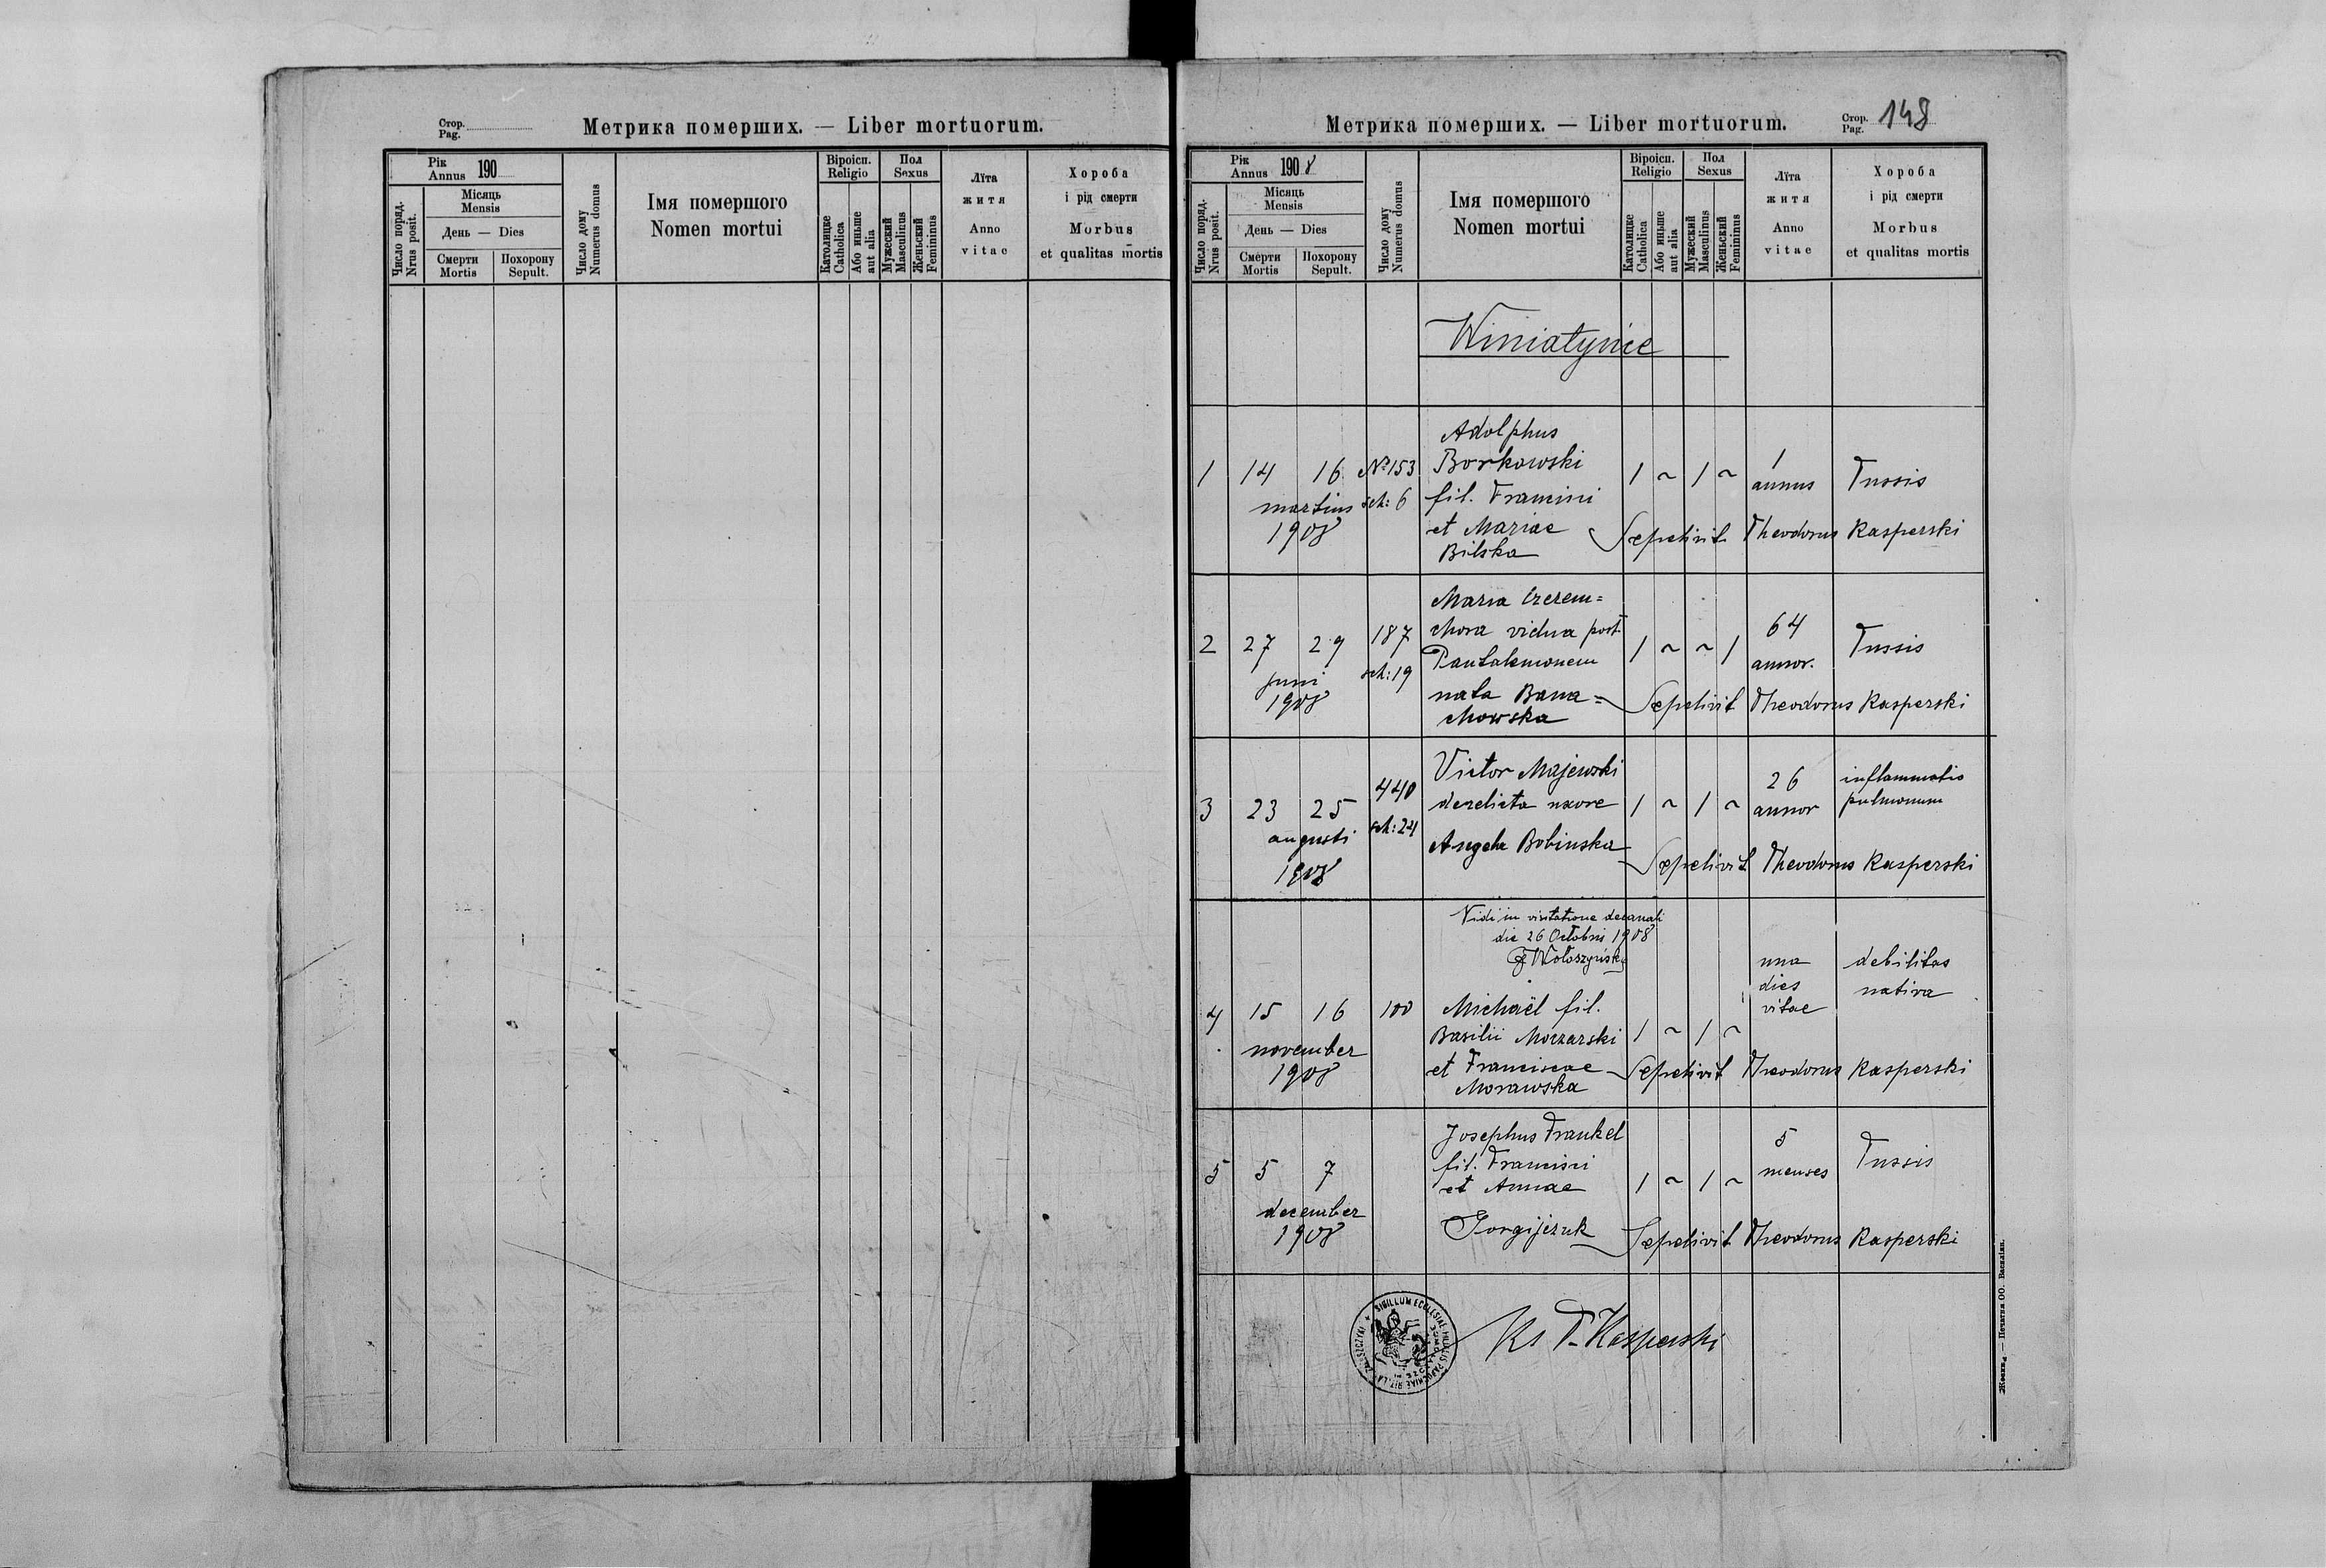 Стор.
Pag.
Метрика померших. — Liber mortuorum.
Рік
Annus 190
Число поряд.
Nrus posit.
Місяць
Mensis
День — Dies
Смерти
Mortis
Похорону
Sepult.
Число дому
Numerus domus
Імя помершого
Nomen mortui
Віроісп.
Religio
Католицке
Catholica
Або иньше
aut alia
Пол
Sexus
Мужеский
Masculinus
Женьский
Femininus
Лїта
житя
Anno
vitae
Хороба
і рід смерти
Morbus
et qualitas mortis
Метрика померших. — Liber mortuorum.
Стор.
Pag. 148
Рік
Annus 1908
Число поряд.
Nrus posit.
Місяць
Mensis
День — Dies
Смерти
Mortis
Похорону
Sepult.
Число дому
Numerus domus
Імя помершого
Nomen mortui
Віроісп.
Religio
Католицке
Catholica
Або иньше
aut alia
Пол
Sexus
Мужеский
Masculinus
Женьский
Femininus
Лїта
житя
Anno
vitae
Хороба
і рід смерти
Morbus
et qualitas mortis
Winiatyńce
Adolphus
1 14 16 № 153 Borkowski 1 ~ 1 ~ 1 annus Tussis
martius sch: 6 fil. Francisci
1908 et Mariae Sepelivit Theodorus Kasperski
Bilska
Maria Czerem=
2 27 29 187 chora vidua post 1 ~ ~ 1 64 annor. Tussis
juni sch: 19 Pantalemonem
1908 nata Bana= Sepelivit Theodorus Kasperski
chowska
Victor Majewski
3 23 25 440 derelicta uxore 1 ~ 1 ~ 26 annor inflammatio pulmonum
augusti sch: 24
1908 Angela Bobinska Sepelivit Theodorus Kasperski
Vidi in visitatione decanali
die 26 Octobris 1908
Wołoszyński
una dies vitae debilitas nativa
4 15 16 100 Michaël fil.
november Basilii Moczarski 1 ~ 1 ~
1908 et Franciscae Sepelivit Theodorus Kasperski
Morawska
Josephus Frankel
5 5 7 fil. Francisci 5 menses Tussis
et Annae 1 ~ 1 ~
december
1908 Gorgijczuk Sepelivit Theodorus Kasperski
Ks T. Kasperski
SIGILLUM ECCLESIAE FILIALIS PAROCHIAE RIT. LAT. ZALESZCZYKI